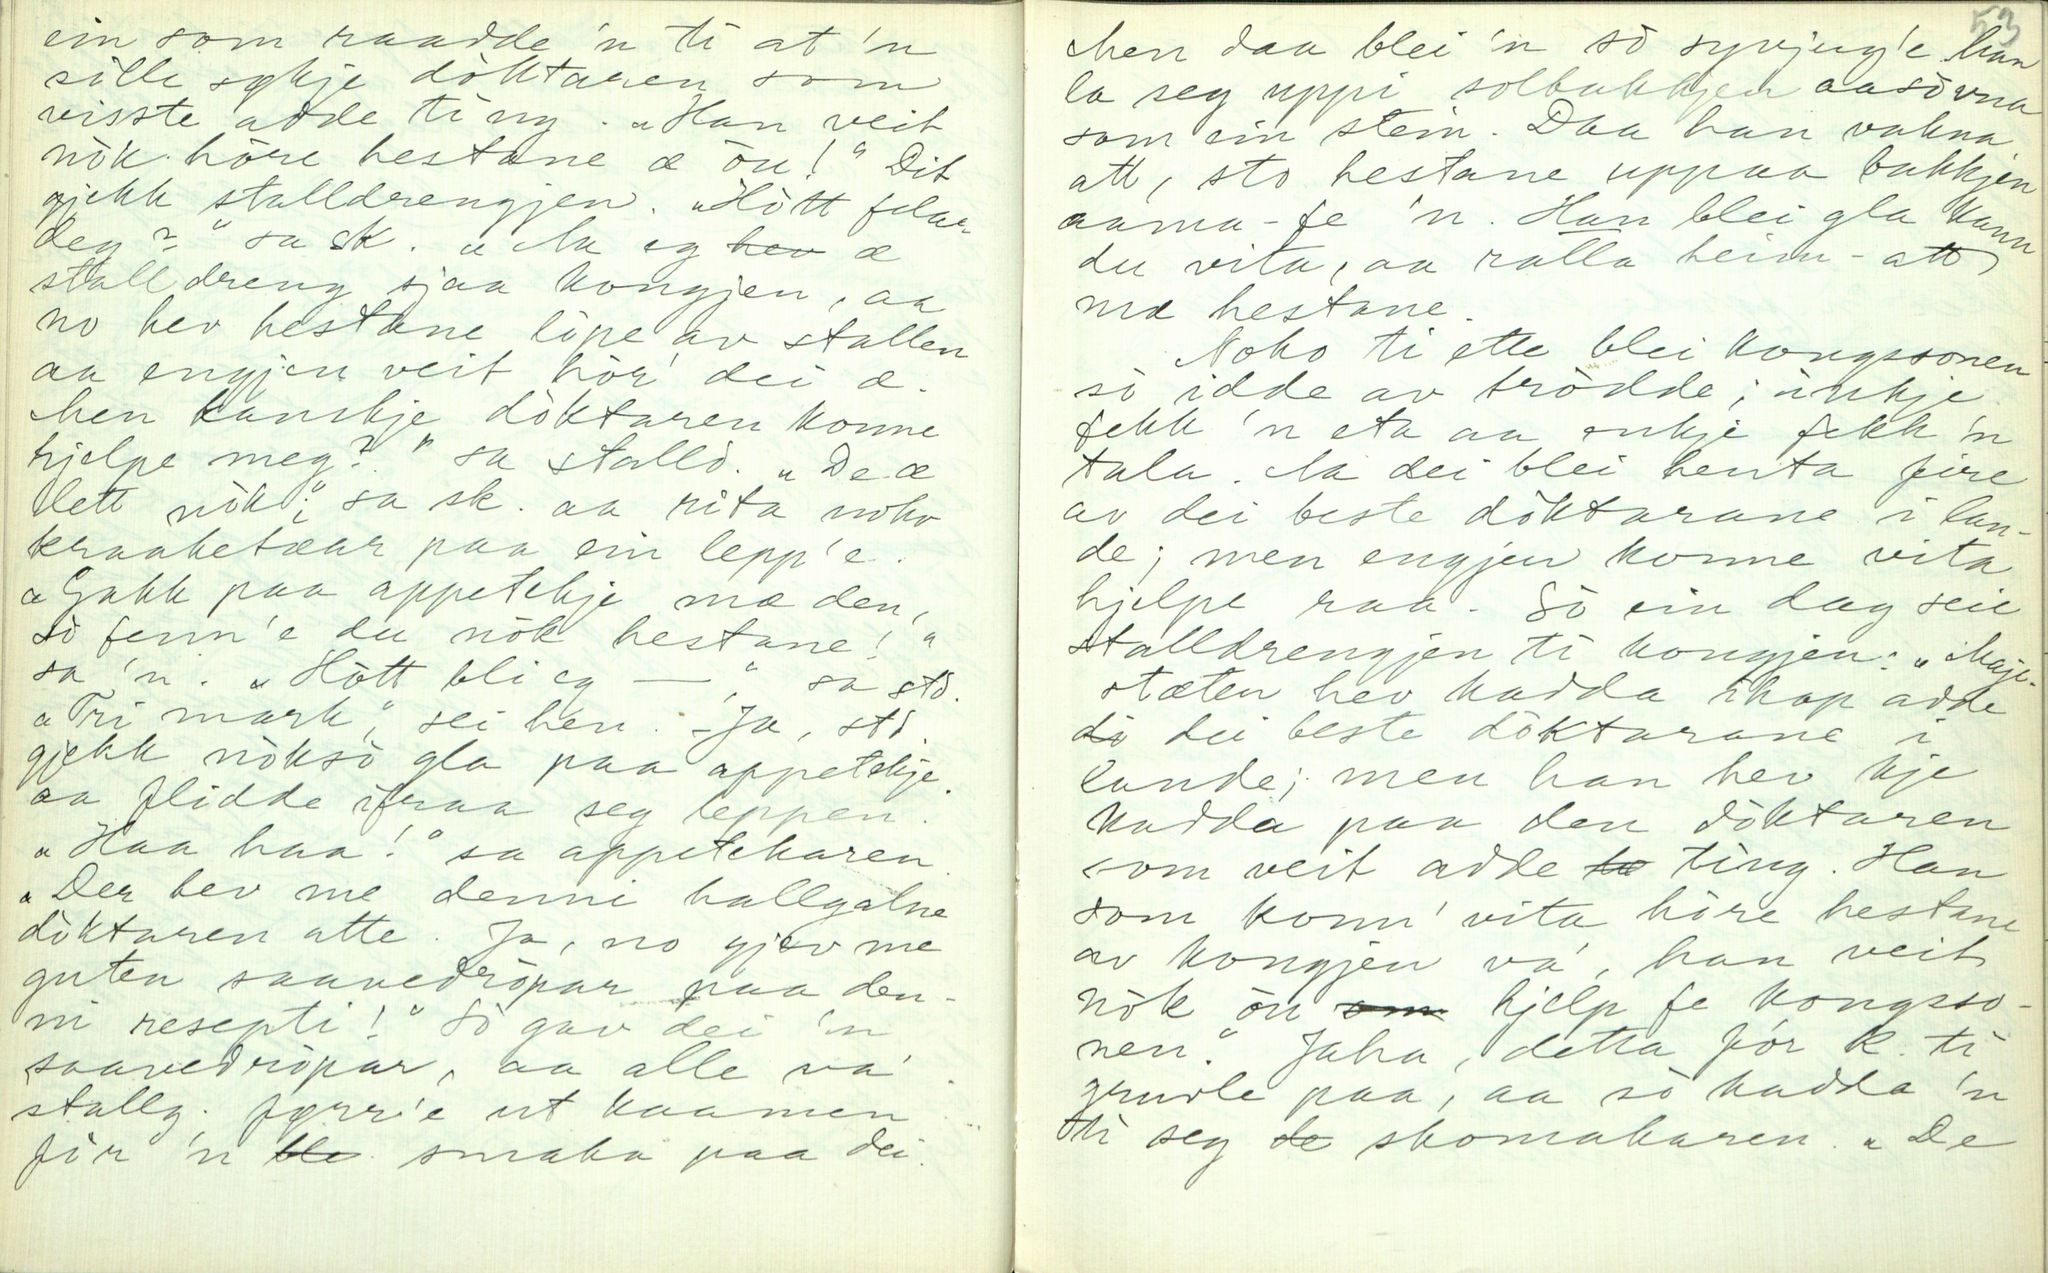 ein som raadde 'n ti at 'n
sille sykje döktaren som
visste adde ting. „Han veit
nök höre hestane æ öu!“ Dit
gjekk stalldrengjen. „Hött felar
deg?“ sa sk. „Aa eg hev æ
stalldreng sjaa kongjen, aa
no hev hestane löpe av stallen
aa engjen veit hör' dei æ.
Men kanskje döktaren konne
hjelpe meg?“ sa stalld. „De æ
lett nök“, sa sk. aa rita noko
kraaketær paa ein lepp'e.
„Gakk paa appetekje mæ den,
sò fenn'e du nök hestane!“
sa 'n. „Hött bli eg —“, sa std.
„Tri mark“, sei hen. Ja, std.
gjekk nöksò gla paa appetekje
aa flidde ifraa seg leppen.
„Haa haa!“ sa appetekaren
„Der hev me denni hallgalne
döktaren atte. Ja, no gjev me
guten saavedròpar paa den-
ni resepti!“ Sò gav dei 'n
saavedròpar, aa alle va'
stallg. fyrr'e ut kaamen
fòr 'n ble smaka paa dei.
53
Men daa blei 'n sò syvjug'e han
la seg uppi solbakkjen aa sòvna
som ein stein. Daa han vakna
att, sto hestane uppaa bakkjen
aama-fe 'n. Han blei gla kann
du vita, aa ralla heim-att
mæ hestane.
Noko ti ette blei kongssonen
sò idde av trödde; inkje
fekk 'n eta aa enkje fekk 'n
tala. Aa dei blei henta fire
av dei beste döktarane i lan-
de; men engjen konne vita
hjelpe raa. Sò ein dag seie
stalldrengjen ti kongjen: „Maje-
stæten hev kadda ihop adde
di dei beste döktarane i
lande; men han hev kje
kadda paa den döktaren
som veit adde te ting. Han
som konn' vita höre hestane
av kongjen va', han veit
nök öu som hjelp fe kongsso-
nen.“ Jaha, detta fór k. ti
grunle paa, aa sò kadda 'n
ti seg de skomakaren. „De